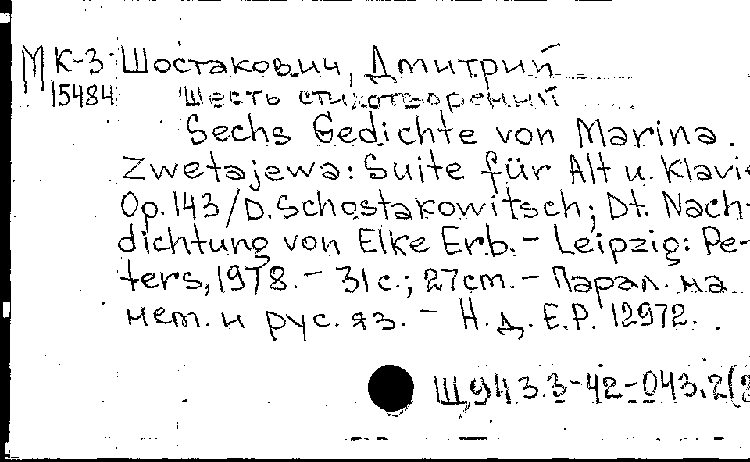 МК-3 Шостакович, Дмитрий
15484 Шесть стихотворений
Sechs Gedichte von Marina
Zwetajewa: Suite für Alt u. Klavie
Op. 143/D. Schostakowitsch; Dt. Nach-
dichtung von Elke Erb. - Leipzig: Pe-
ters, 1978. - 31 с.; 27cm. - Парал. на
нем. и рус. яз. - Н. д. E.P. 12972.
Щ943.3-42-043.2(